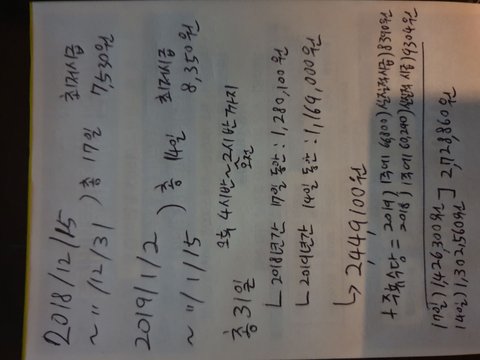 2018/12/15 최저시급
~ 〃 /12/31 ) 총 17일 7,530원
2019/1/2 최저시급
~ 〃 /1/15 ) 총 14일 8,350원
총 31일 오후 4시반~2시반까지
오전
ㄴ 2018년간 17일 동안 : 1,280,100원
ㄴ 2019년간 14일 동안 : 1,169,000원
↳ 2,449,100원
+주휴수당 = 2019) 8390원
2018) 9304원
17일) 1,426,300원
14일) 1,302,560원 ] 2,728,860원